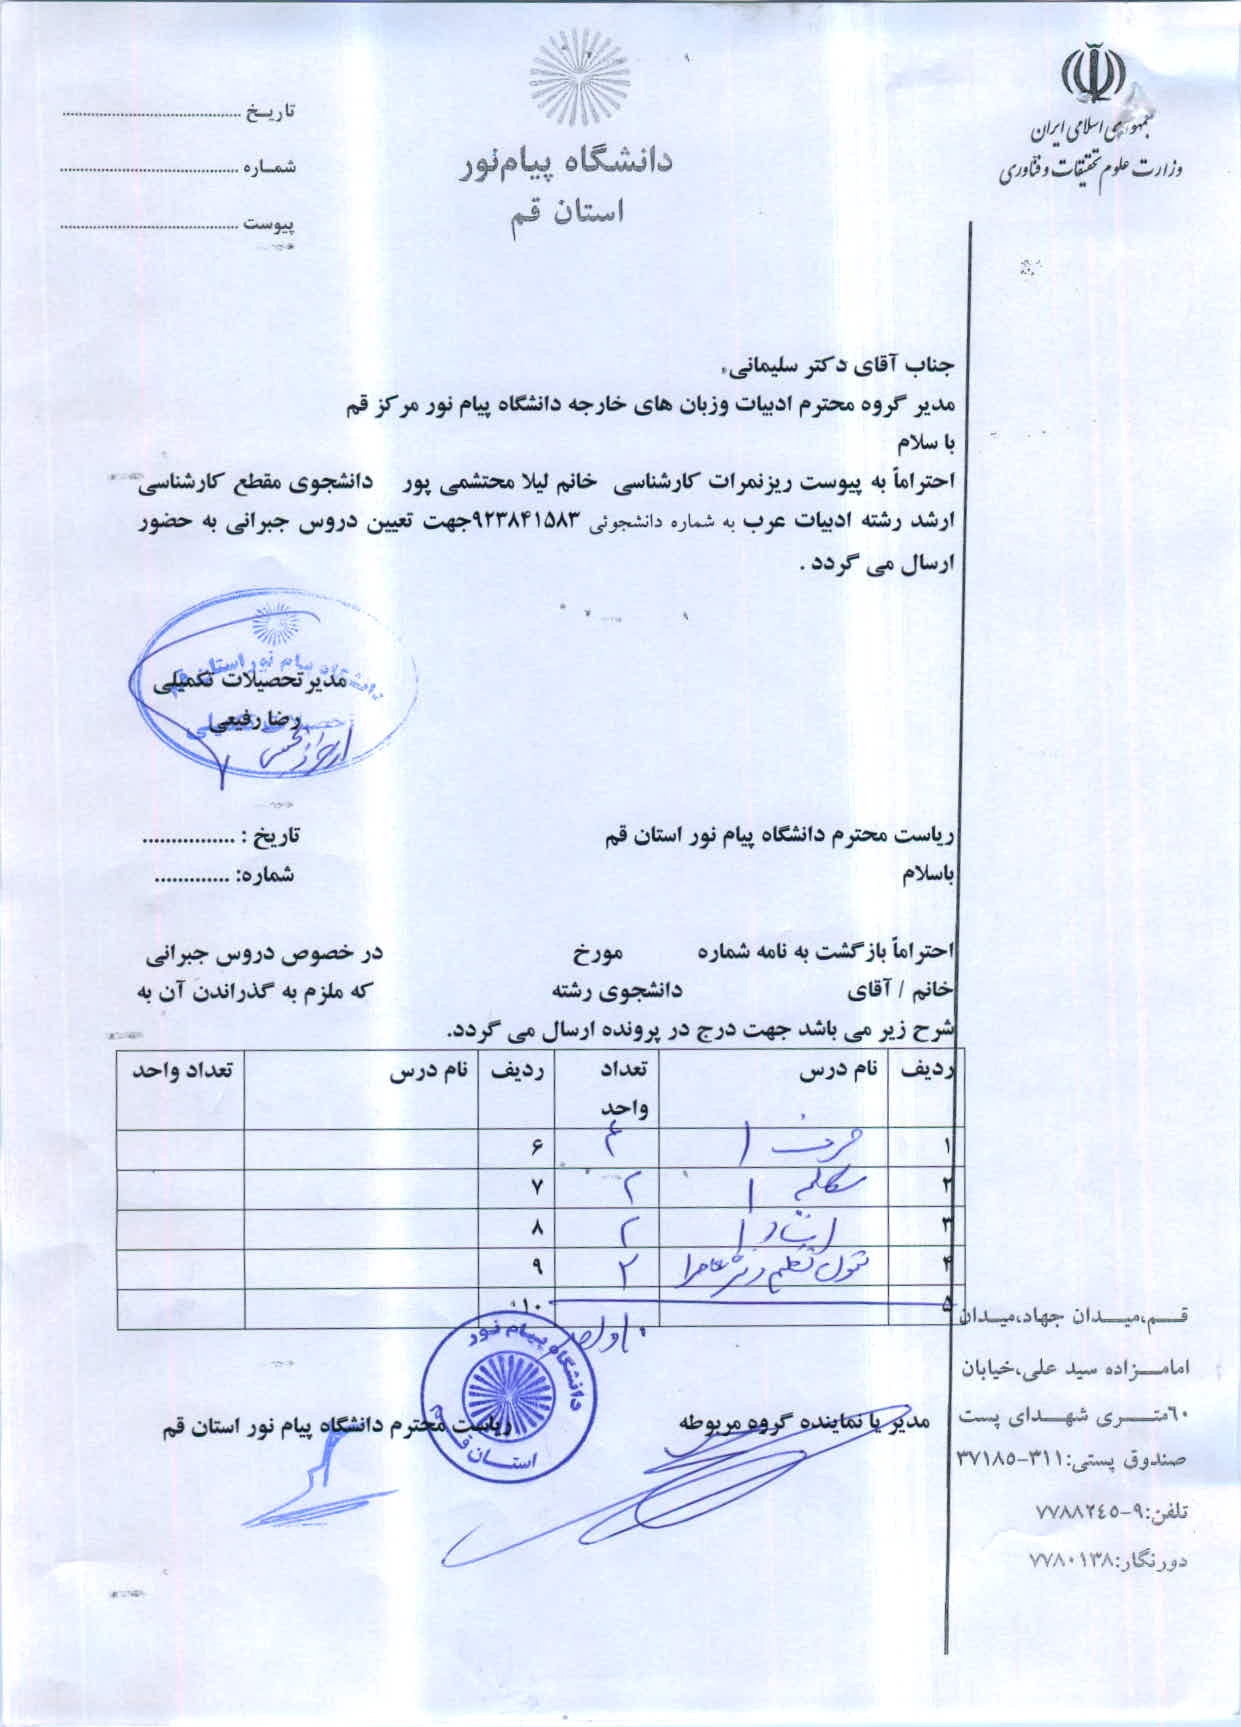 جمهوری اسلامی ایران
وزارت علوم تحقیقات و فنّاوری
دانشگاه پیام‌نور
استان قم
تاریـخ ........................................
شمـاره ........................................
پیوست ........................................
جناب آقای دکتر سلیمانی
مدیر گروه محترم ادبیات وزبان های خارجه دانشگاه پیام نور مرکز قم
با سلام
احتراماً به پیوست ریزنمرات کارشناسی خانم لیلا محتشمی پور دانشجوی مقطع کارشناسی
ارشد رشته ادبیات عرب به شماره دانشجوئی ۹۲۳۸۴۱۵۸۳جهت تعیین دروس جبرانی به حضور
ارسال می گردد .
دانشگاه پیام نور استان قم
مدیرتحصیلات تکمیلی
رضا رفیعی
ریاست محترم دانشگاه پیام نور استان قم
تاریخ : ................
باسلام
شماره: .............
احتراماً بازگشت به نامه شماره مورخ در خصوص دروس جبرانی
خانم / آقای دانشجوی رشته که ملزم به گذراندن آن به
شرح زیر می باشد جهت درج در پرونده ارسال می گردد.
ردیف نام درس تعداد واحد ردیف نام درس تعداد واحد
۱ صرف ۱ ۴ ۶
۲ مکالمه ۱ ۲ ۷
۳ ۱ ۲ ۸
۴ متون نظم و نثر ۲ ۹
۵ ۱۰
۱۰ واحد
مدیر یا نماینده گروه مربوطه
ریاست محترم دانشگاه پیام نور استان قم
دانشگاه پیام نور
استان قم
قـــم،میـــدان جهاد،میـدان
امامـــزاده سید علی،خیابان
٦٠متـــری شهـــدای پست
صندوق پستی:۳۱۱-۳۷۱۸۵
تلفن:۹-۷۷۸۸۲٤٥
دورنگار:۷۷۸۰۱۳۸